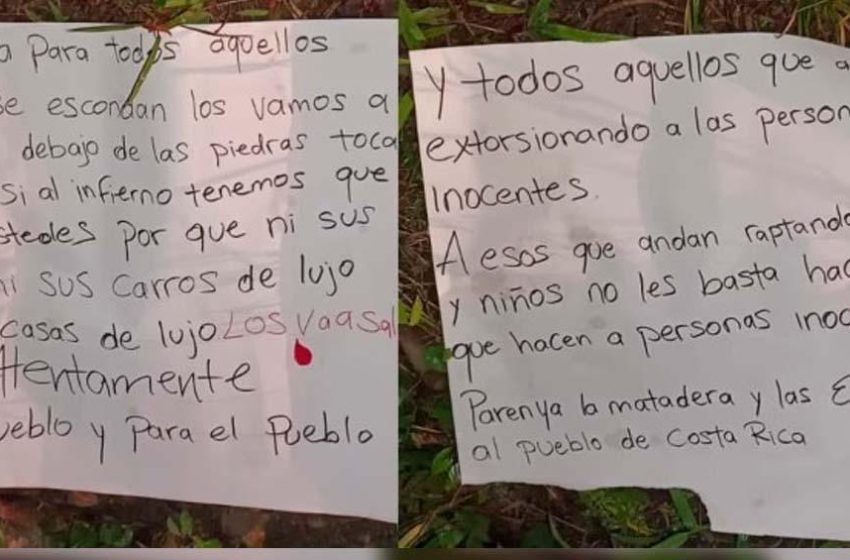 a Para todos aquellos
se escondan los vamos a
debajo de las piedras toca
Si al infierno tenemos que
stedes Por que ni sus
ni sus carros de lujo
casas de lujo LOS Vaasal
Atentamente
ueblo y Para el Pueblo
Y todos aquellos que a
extorsionando a las person
Inocentes.
A esos que andan raptando
y niños no les basta hac
que hacen a personas inoc
Paren ya la matadera y las E
al pueblo de Costa Rica